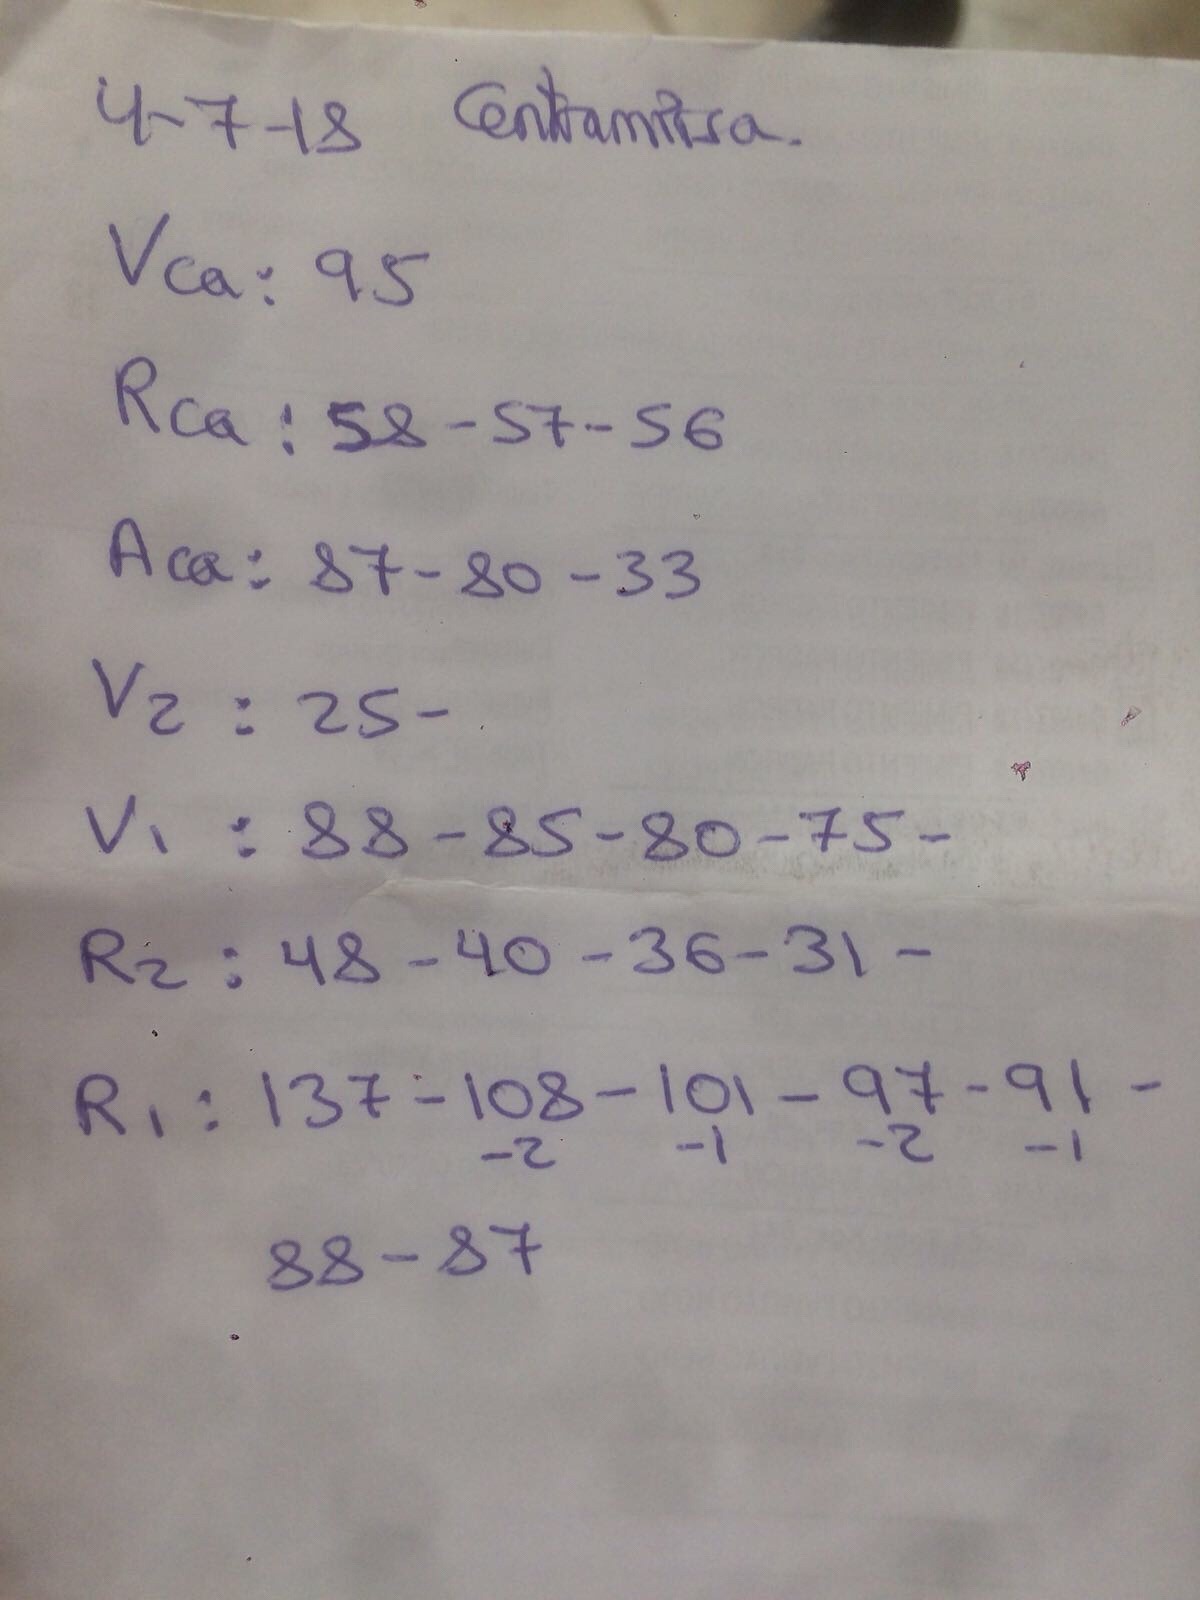 4-7-18 Centramirsa.
Vca: 95
Rca: 58-57-56
Aca: 87-80-33
V2: 25-
V1: 88-85-80-75-
R2: 48-40-36-31-
R1: 137-108-101-97-91-
-2 -1 -2 -1
88-87